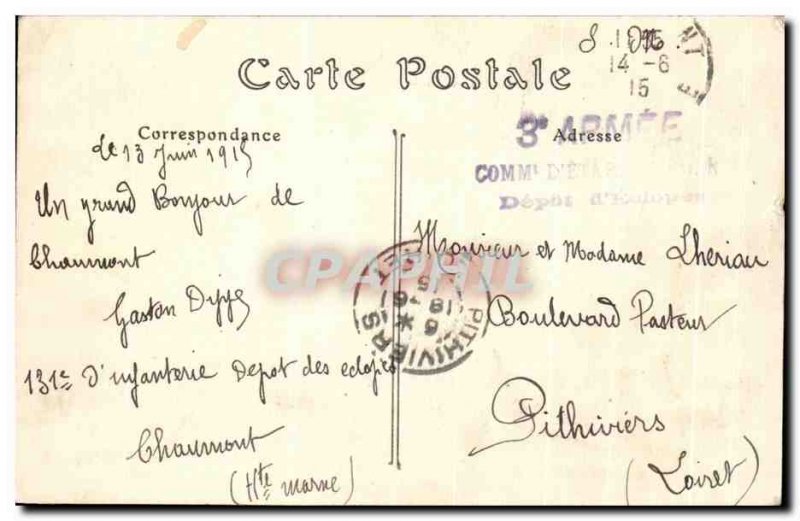 Carte Postale
Correspondance
le 13 Juin 1915
Un grand Bonjour de
Chaumont
Gaston
131e d'infanterie Depot des eclopés
Chaumont
(Hte marne)
S M
14 - 6
15
3e ARMÉE
Adresse
COMMt D'ÉTAPES
Dépôt d'Éclopés
Monsieur et Madame Lheriau
Boulevard Pasteur
Pithiviers
(Loiret)
PITHIVIERS
CPAPHIL